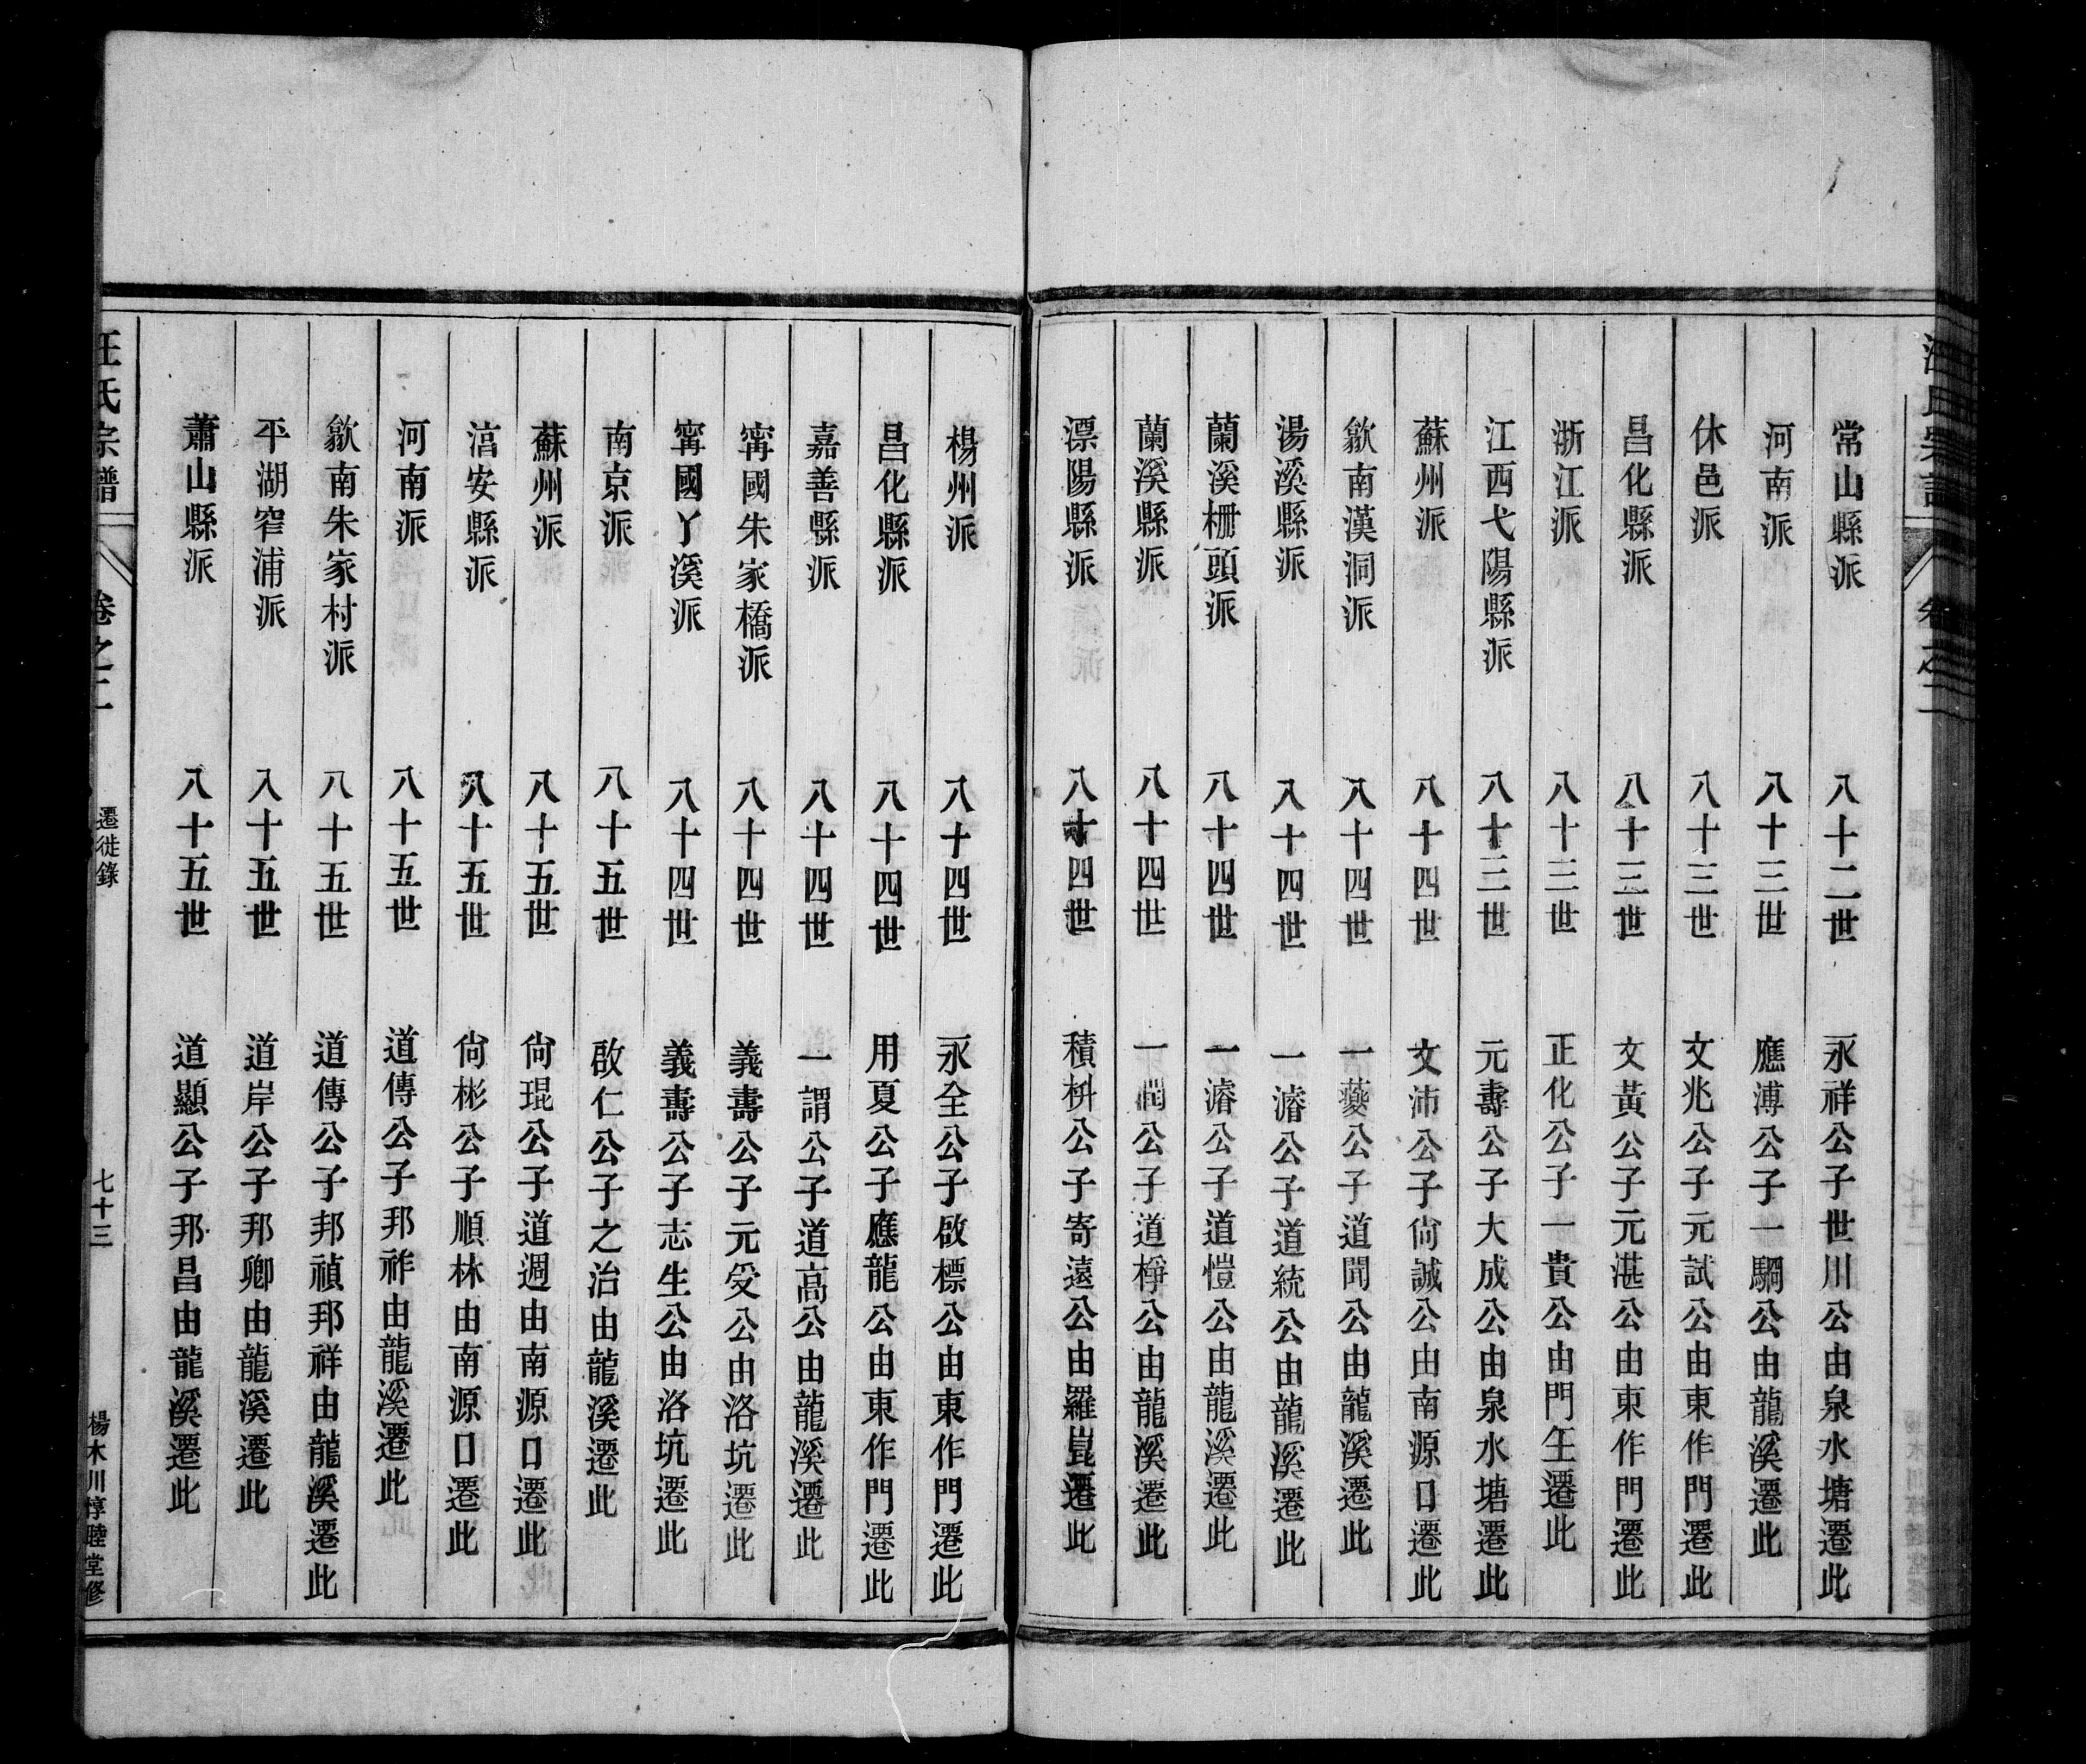 汪氏宗譜
卷之二
常山縣派 八十二世 永祥公子世川公由泉水塘遷此
河南派 八十三世 應溥公子一駉公由龍溪遷此
休邑派 八十三世 文兆公子元試公由東作門遷此
昌化縣派 八十三世 文黃公子元湛公由東作門遷此
浙江派 八十三世 正化公子一貴公由門𡈼遷此
江西弋陽縣派 八十三世 元壽公子大成公由泉水塘遷此
蘇州派 八十四世 文沛公子尙誠公由南源口遷此
歙南漢洞派 八十四世 一夔公子道聞公由龍溪遷此
湯溪縣派 八十四世 一濬公子道統公由龍溪遷此
蘭溪柵頭派 八十四世 一濬公子道愷公由龍溪遷此
蘭溪縣派 八十四世 一潤公子道桪公由龍溪遷此
漂陽縣派 八十四世 積枓公子寄遠公由羅崑遷此
楊州派 八十四世 永全公子啟標公由東作門遷此
昌化縣派 八十四世 用夏公子應龍公由東作門遷此
嘉善縣派 八十四世 一謂公子道高公由龍溪遷此
寗國朱家橋派 八十四世 義壽公子元受公由洛坑遷此
寗國丫溪派 八十四世 義壽公子志生公由洛坑遷此
南京派 八十五世 啟仁公子之治由龍溪遷此
蘇州派 八十五世 尙琨公子道週由南源口遷此
湻安縣派 八十五世 尙彬公子順林由南源口遷此
河南派 八十五世 道傳公子邦祚由龍溪遷此
歙南朱家村派 八十五世 道傳公子邦禎邦祥由龍溪遷此
平湖窄浦派 八十五世 道岸公子邦卿由龍溪遷此
蕭山縣派 八十五世 道顯公子邦昌由龍溪遷此
汪氏宗譜
卷之二
遷徙錄
七十三
楊木川惇睦堂修